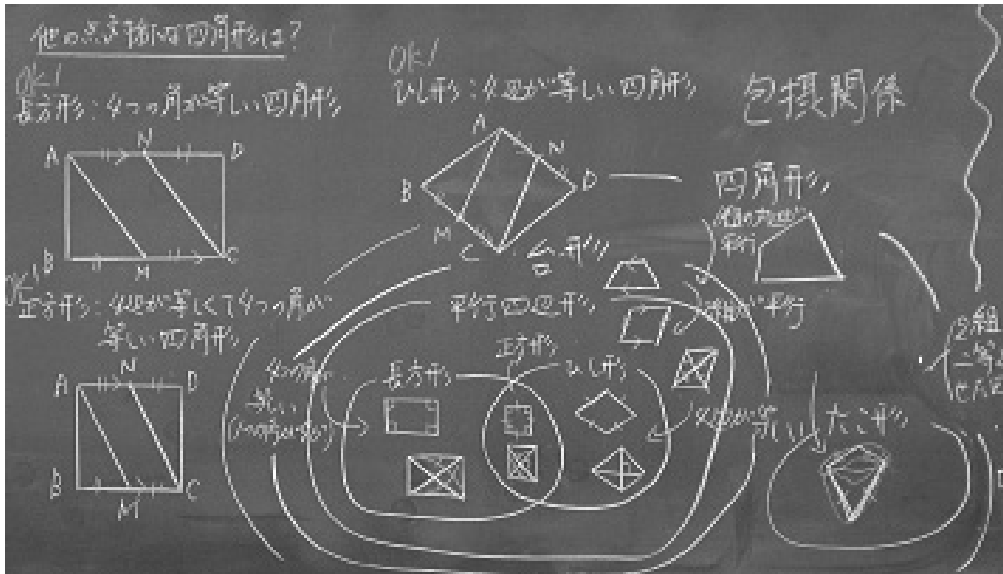 他の
四角形は?
OK!
長方形:4つの角が等しい四角形
A N D
B M C
OK!
正方形:4辺が等しくて4つの角が
等しい四角形
A N D
B M C
OK!
ひし形:4辺が等しい四角形
A
N
B D
M
C
包摂関係
四角形
平行
台形
平行四辺形
2組が平行
正方形
長方形
ひし形
4つの角が
等しい
4辺が等しい
たこ形
2組